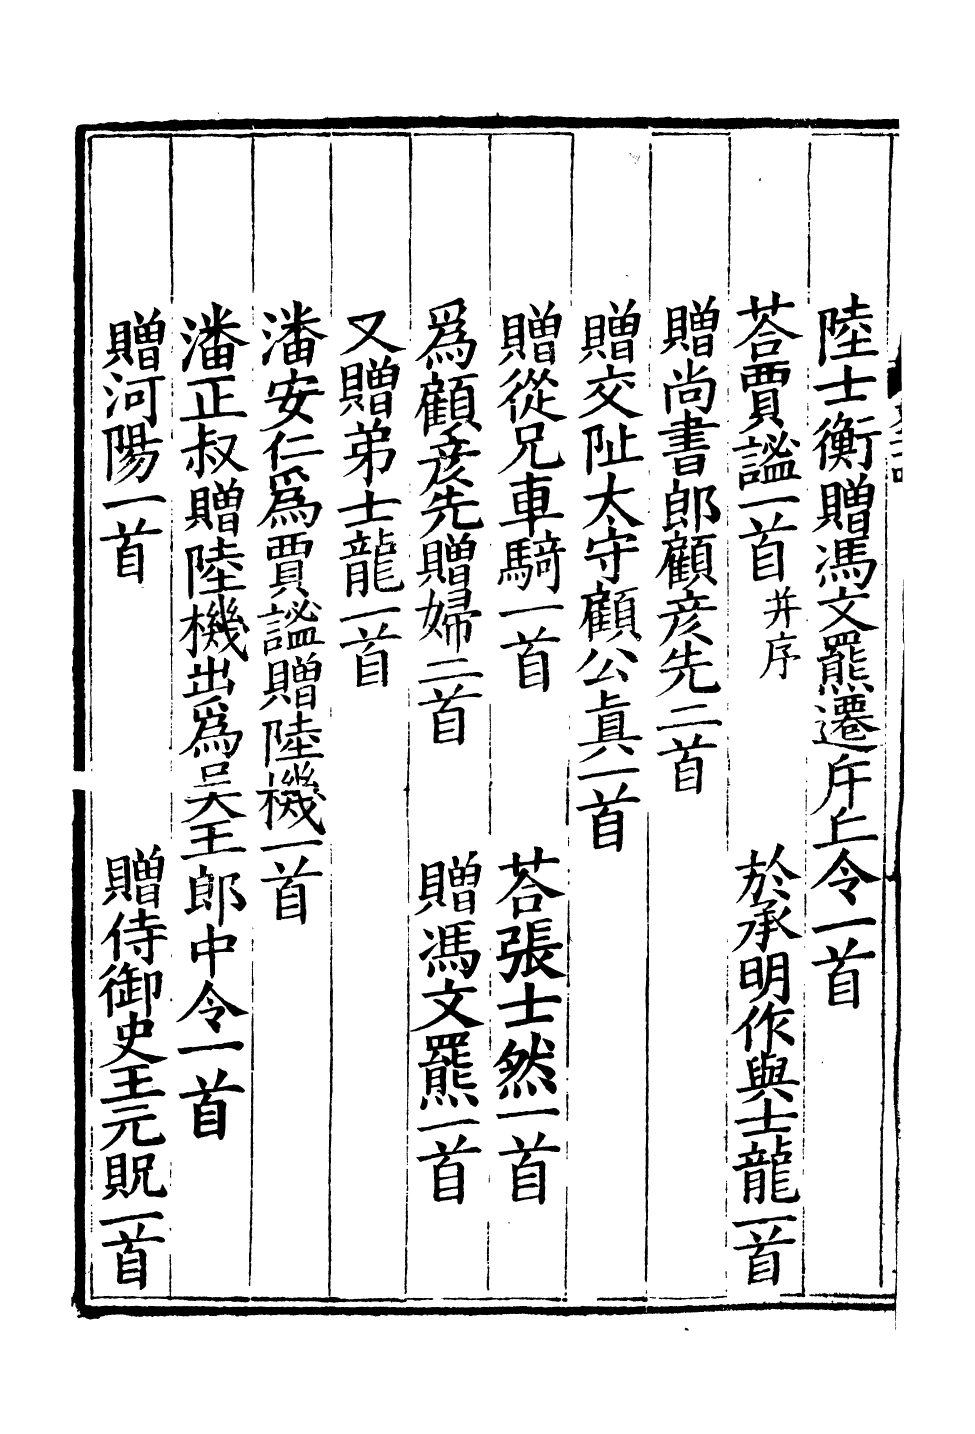 陸士衡贈馮文羆遷斥丘令一首
荅賈謐一首并序　於承明作與士龍一首
贈尚書郎顧彦先二首
贈交阯太守顧公眞一首
贈從兄車騎一首　荅張士然一首
爲顧彦先贈婦二首　贈馮文羆一首
又贈弟士龍一首
潘安仁爲賈謐贈陸機一首
潘正叔贈陸機出爲吴王郎中令一首
贈河陽一首　贈侍御史王元貺一首